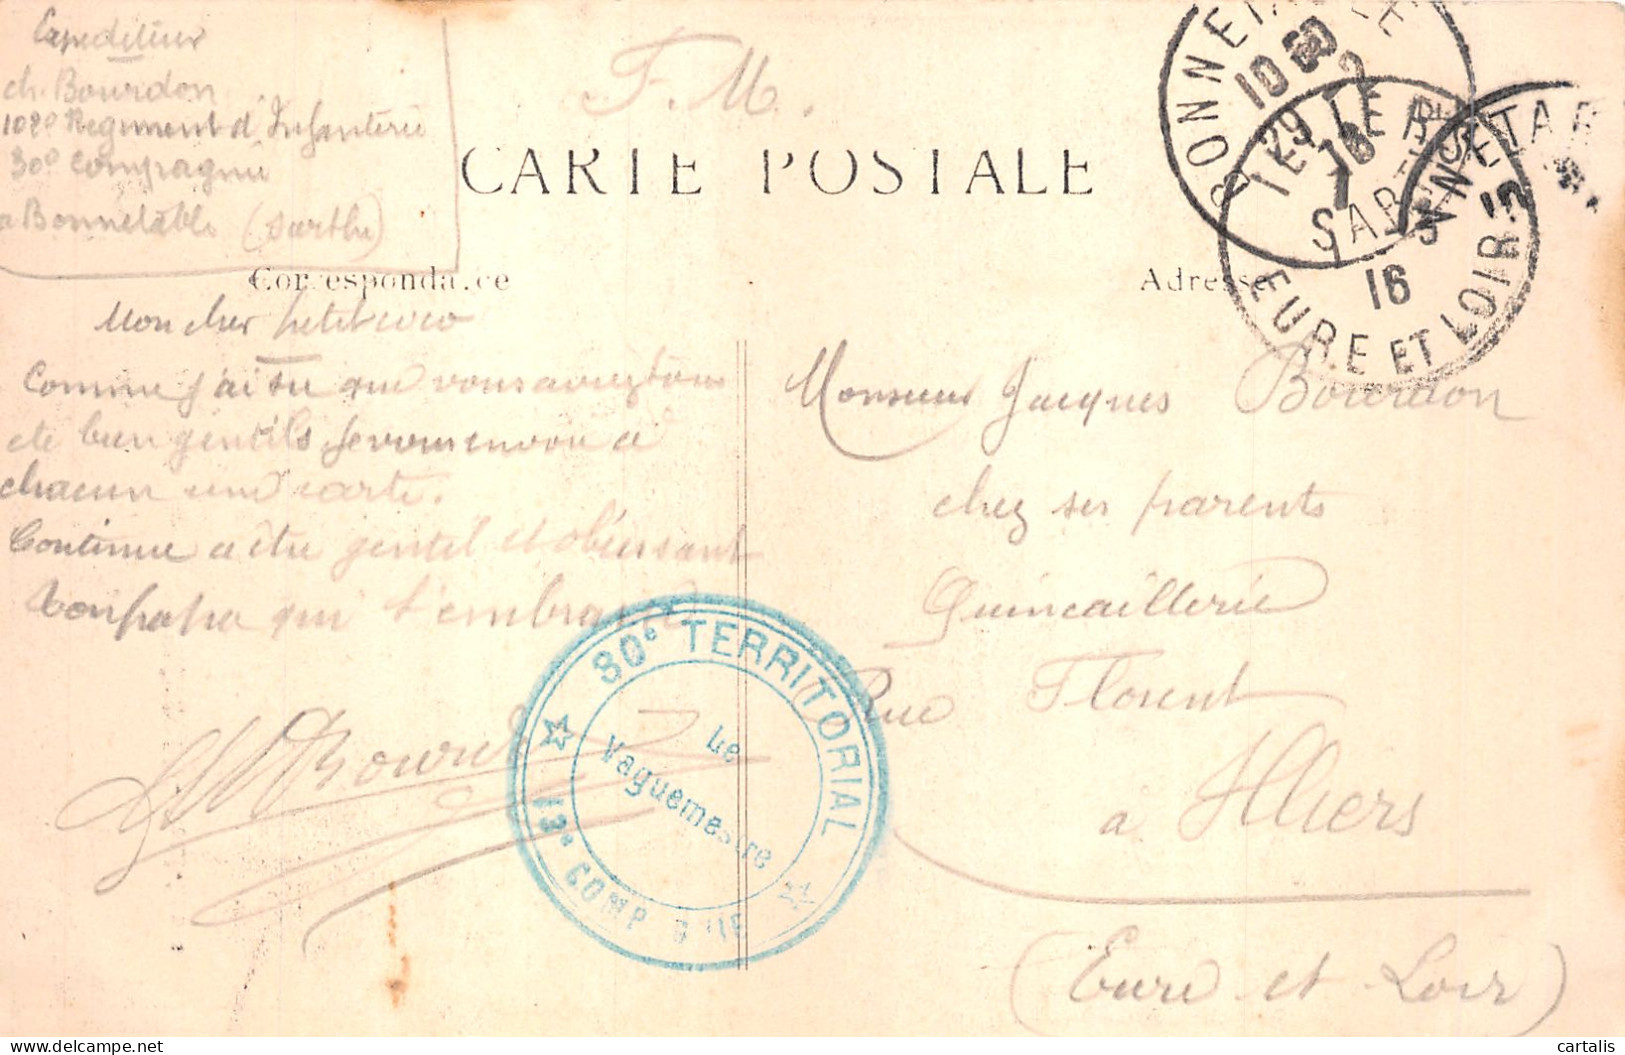 Expediteur
ch. Bourdon
102e Regiment d'Infanterie
30e Compagnie
a Bonnetable (Sarthe)
F. M.
CARTE POSTALE
Correspondance
Adresse
BONNETABLE
10 60
29 2
16
SARTHE
EURE ET LOIR
16
NNETAB
Mon cher petit coco
Comme j'ai su que vous aviez tous
ete bien gentils je vous envoie a
chacun une carte.
Continue a etre gentil et obeissant
Ton papa qui t'embrasse
Ch Bourdon
Monsieur Jacques Bourdon
chez ses parents
Quincaillerie
Rue Florent
a Illiers
(Eure et Loir)
80e TERRITORIAL
Le
Vaguemestre
13e COMPAGNIE
cartalis
delcampe.net